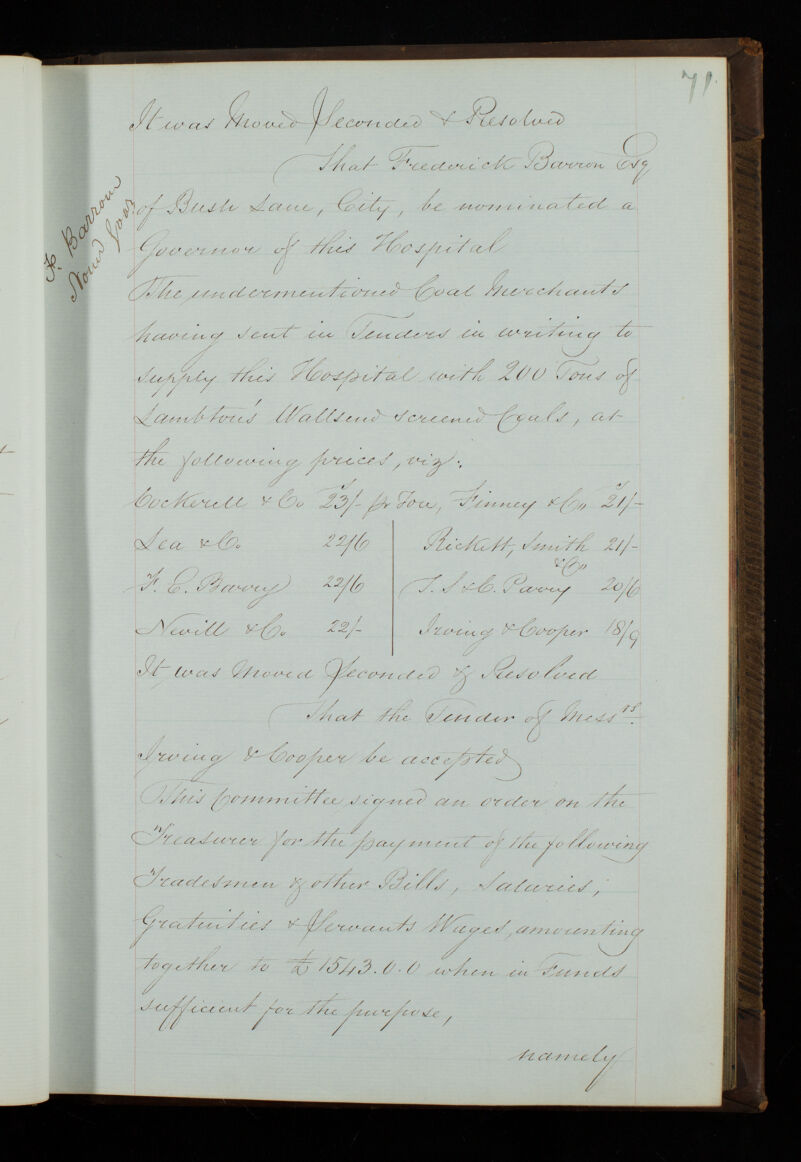 71.
It was Moved Seconded & Resolved
That Frederick Barron Esq
of Bush Lane, City, be nominated a
Governor of this Hospital
F. Barron
Nomd Govr
The undermentioned Coal Merchants
having sent in Tenders in writing to
supply this Hospital with 200 Tons of
Lambton's Wallsend screened Coals, at
the following prices, viz:
Cockerell & Co 23/- pr Ton, Finney & Co 21/-
Lea & Co. 22/6 Rickett, Smith & Co 21/-
F. E. Barry 22/6 T. S & C. Parry 20/6
Nevill & Co. 22/- Irving & Cooper 18/9
It was Moved Seconded & Resolved
That the Tender of Messrs.
Irving & Cooper be accepted
This Committee signed an order on the
Treasurer for the payment of the following
Tradesmen & other Bills, Salaries,
Gratuities & Servants Wages, amounting
together to £1543.0.0 when in Funds
sufficient for the purpose,
namely